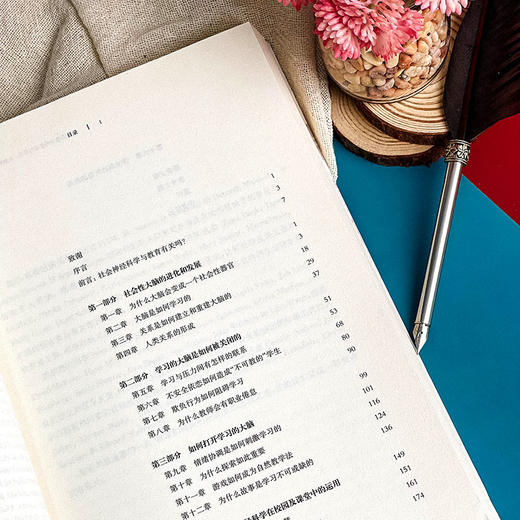 目录 | 1
致谢 1
序言 3
前言：社会神经科学与教育有关吗？ 7
第一部分 社会性大脑的进化和发展 1
第一章 为什么大脑会变成一个社会性器官 3
第二章 大脑是如何学习的 18
第三章 关系是如何建立和重建大脑的 29
第四章 人类关系的形成 37
第二部分 学习的大脑是如何被关闭的 51
第五章 学习与压力间有怎样的联系 53
第六章 不安全依恋如何造成“不可教的”学生 68
第七章 欺负行为如何阻碍学习 80
第八章 为什么教师会有职业倦怠 90
第三部分 如何打开学习的大脑 99
第九章 情绪协调是如何刺激学习的 101
第十章 为什么探索如此重要 116
第十一章 游戏如何成为自然教学法 124
第十二章 为什么故事是学习不可或缺的 136
经科学在校园及课堂中的运用 149
151
161
174